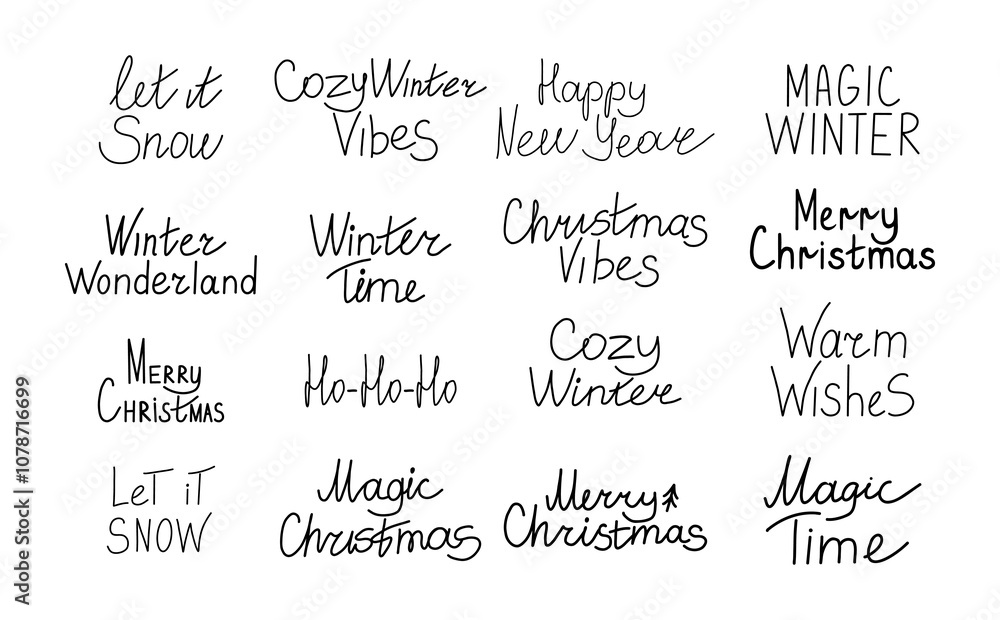 let it
Snow
Cozy Winter
Vibes
Happy
New Year
MAGIC
WINTER
Winter
Wonderland
Winter
Time
Christmas
Vibes
Merry
Christmas
MERRY
CHRiSTMAS
Ho-Ho-Ho
Cozy
Winter
Warm
WIsheS
LeT iT
SNOW
Magic
Christmas
Merry
Christmas
Magic
Time
Adobe Stock | #1078716699